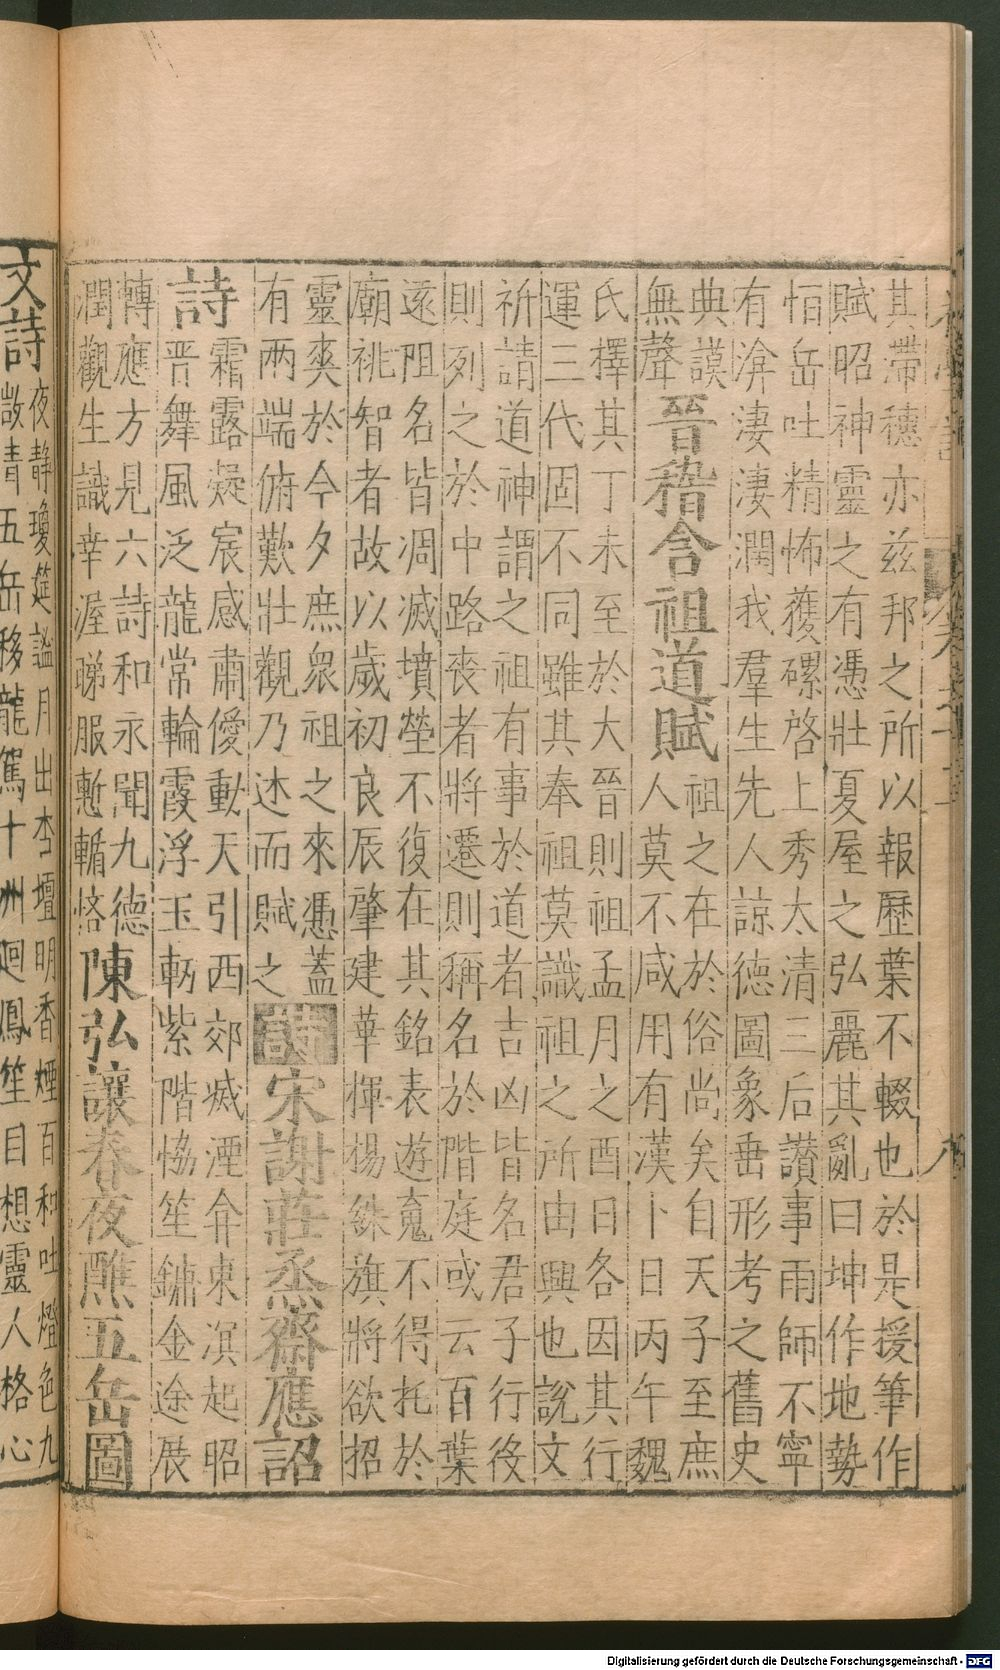 其滯穗亦茲邦之所以報歷葉不輟也於是援筆作
賦昭神靈之有憑壯夏屋之弘麗其亂曰坤作地勢
恒岳吐精怖獲磥啓上秀太清二后讃事雨師不寧
有渰淒淒潤我羣生先人諒德圖象垂形考之舊史
典謨
無聲
晉嵇含祖道賦
祖之在於俗尚矣自天子至庶
人莫不咸用有漢卜日丙午魏
氏擇其丁未至於大晉則祖孟月之酉日各因其行
運三代固不同雖其奉祖莫識祖之所由興也說文
祈請道神謂之祖有事於道者吉凶皆名君子行役
則列之於中路喪者將遷則稱名於階庭或云百葉
遠阻名皆凋滅墳塋不復在其銘表遊䰟不得托於
廟祧智者故以歲初良辰肇建華揮揚綵旗將欲招
靈爽於今夕庶衆祖之來憑蓋
有兩端俯歎壯觀乃述而賦之
詩
宋謝莊烝齋應詔
詩
霜露凝宸感肅僾動天引西郊滅湮弇東溟起昭
晋舞風泛龍常輪霞浮玉軔紫階恊笙鏞金途展
轉應方見六詩和永聞九德
潤觀生識幸渥睇服慙輶恡
陳弘讓春夜醮五岳圖
文詩
夜静瓊筵謐月出杏壇明香煙百和吐燈色九
敞青五岳移龍駕十洲廻鳳笙目想靈人格心
Digitalisierung gefördert durch die Deutsche Forschungsgemeinschaft - DFG